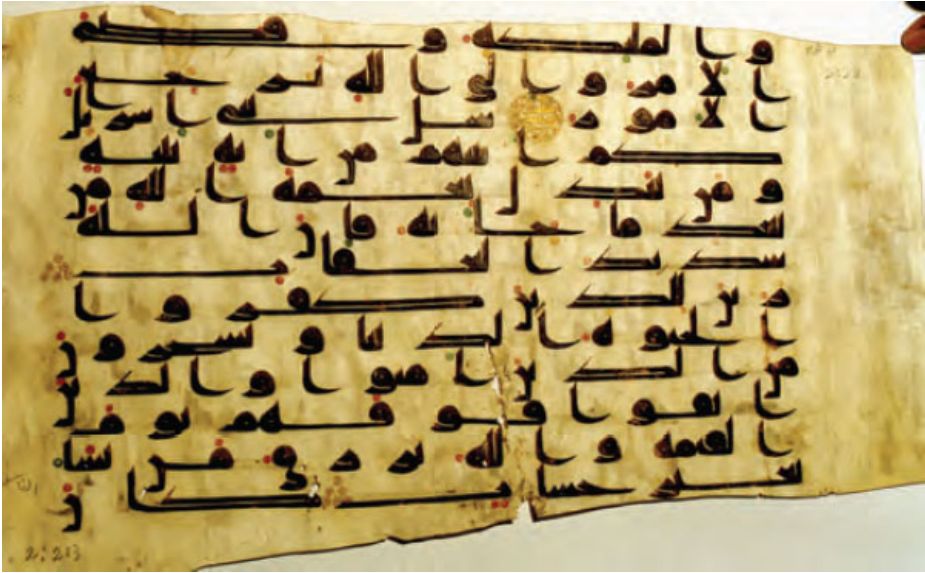 والملئكه وقضي
الامر والى الله ترجع
الامور سل بني اسريل
كم اتينهم من ايه بينه
ومن يبدل نعمه الله من
بعد ما جاته فان الله
شديد العقاب
زين للذين كفروا
الحيوه الدنيا ويسخرون
من الذين امنوا والذين
اتقوا فوقهم يوم
القيمه والله يرزق من يشا
بغير حساب كان
2:213